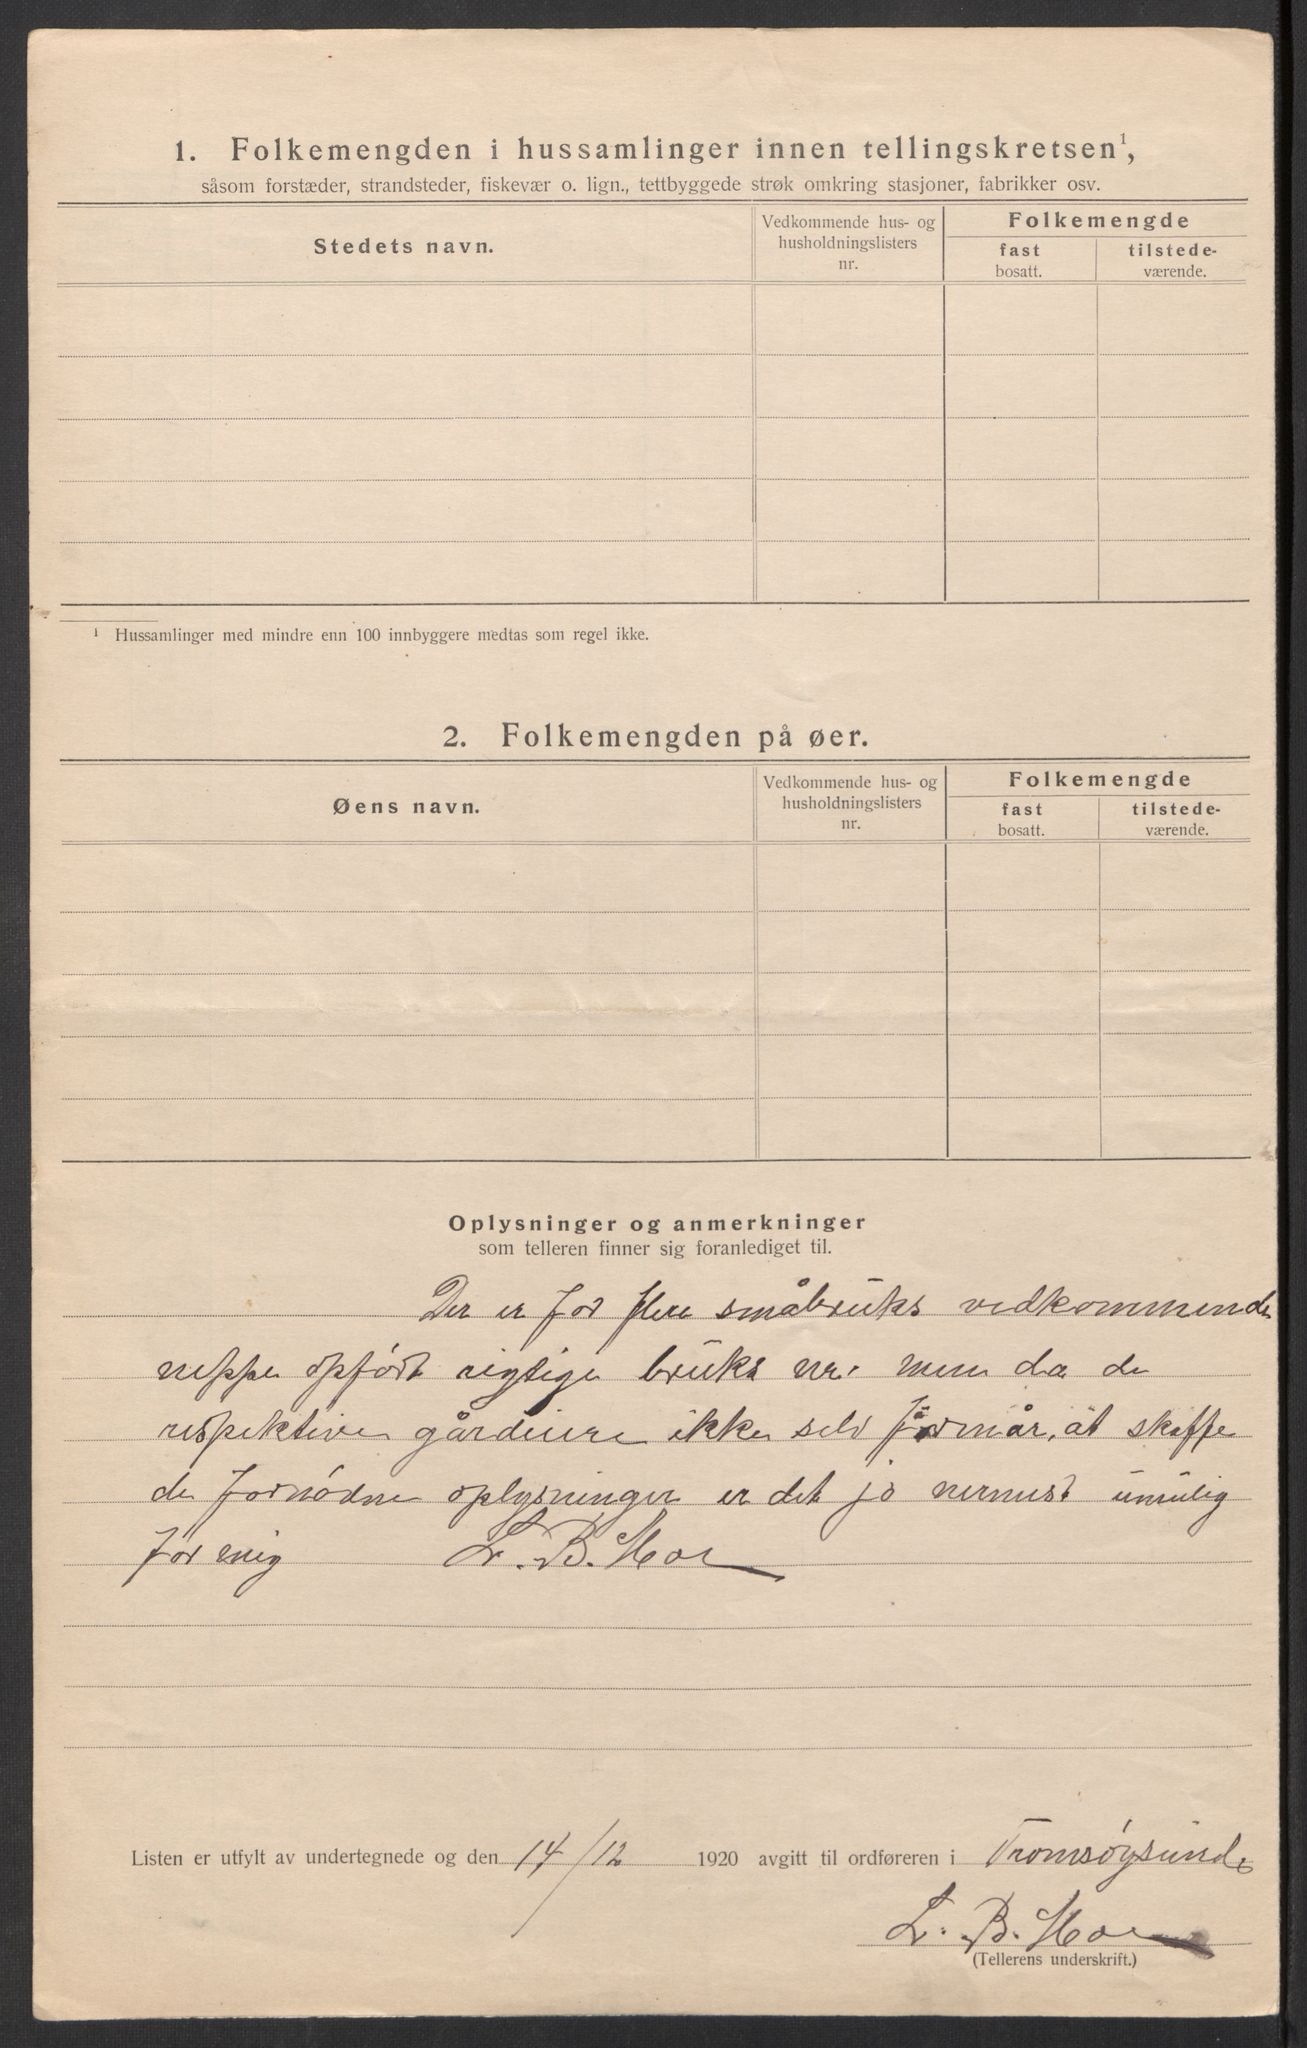 1. Folkemengden i hussamlinger innen tellingskretsen¹,
såsom forstæder, strandsteder, fiskevær o. lign., tettbyggede strøk omkring stasjoner, fabrikker osv.
Stedets navn.
Vedkommende hus- og
husholdningslisters
nr.
Folkemengde
fast
bosatt.
tilstede-
værende.
¹ Hussamlinger med mindre enn 100 innbyggere medtas som regel ikke.
2. Folkemengden på øer.
Øens navn.
Vedkommende hus- og
husholdningslisters
nr.
Folkemengde
fast
bosatt.
tilstede-
værende.
Oplysninger og anmerkninger
som telleren finner sig foranlediget til.
Der er for flere småbruks vedkommende
neppe opført rigtige bruks nr. men da de
respektive gårdeiere ikke selv formår, at skaffe
de fornødne oplysninger er det jo nermest umulig
for mig L. B.
Listen er utfylt av undertegnede og den 14/12 1920 avgitt til ordføreren i Tromsøysund
L. B.
(Tellerens underskrift.)